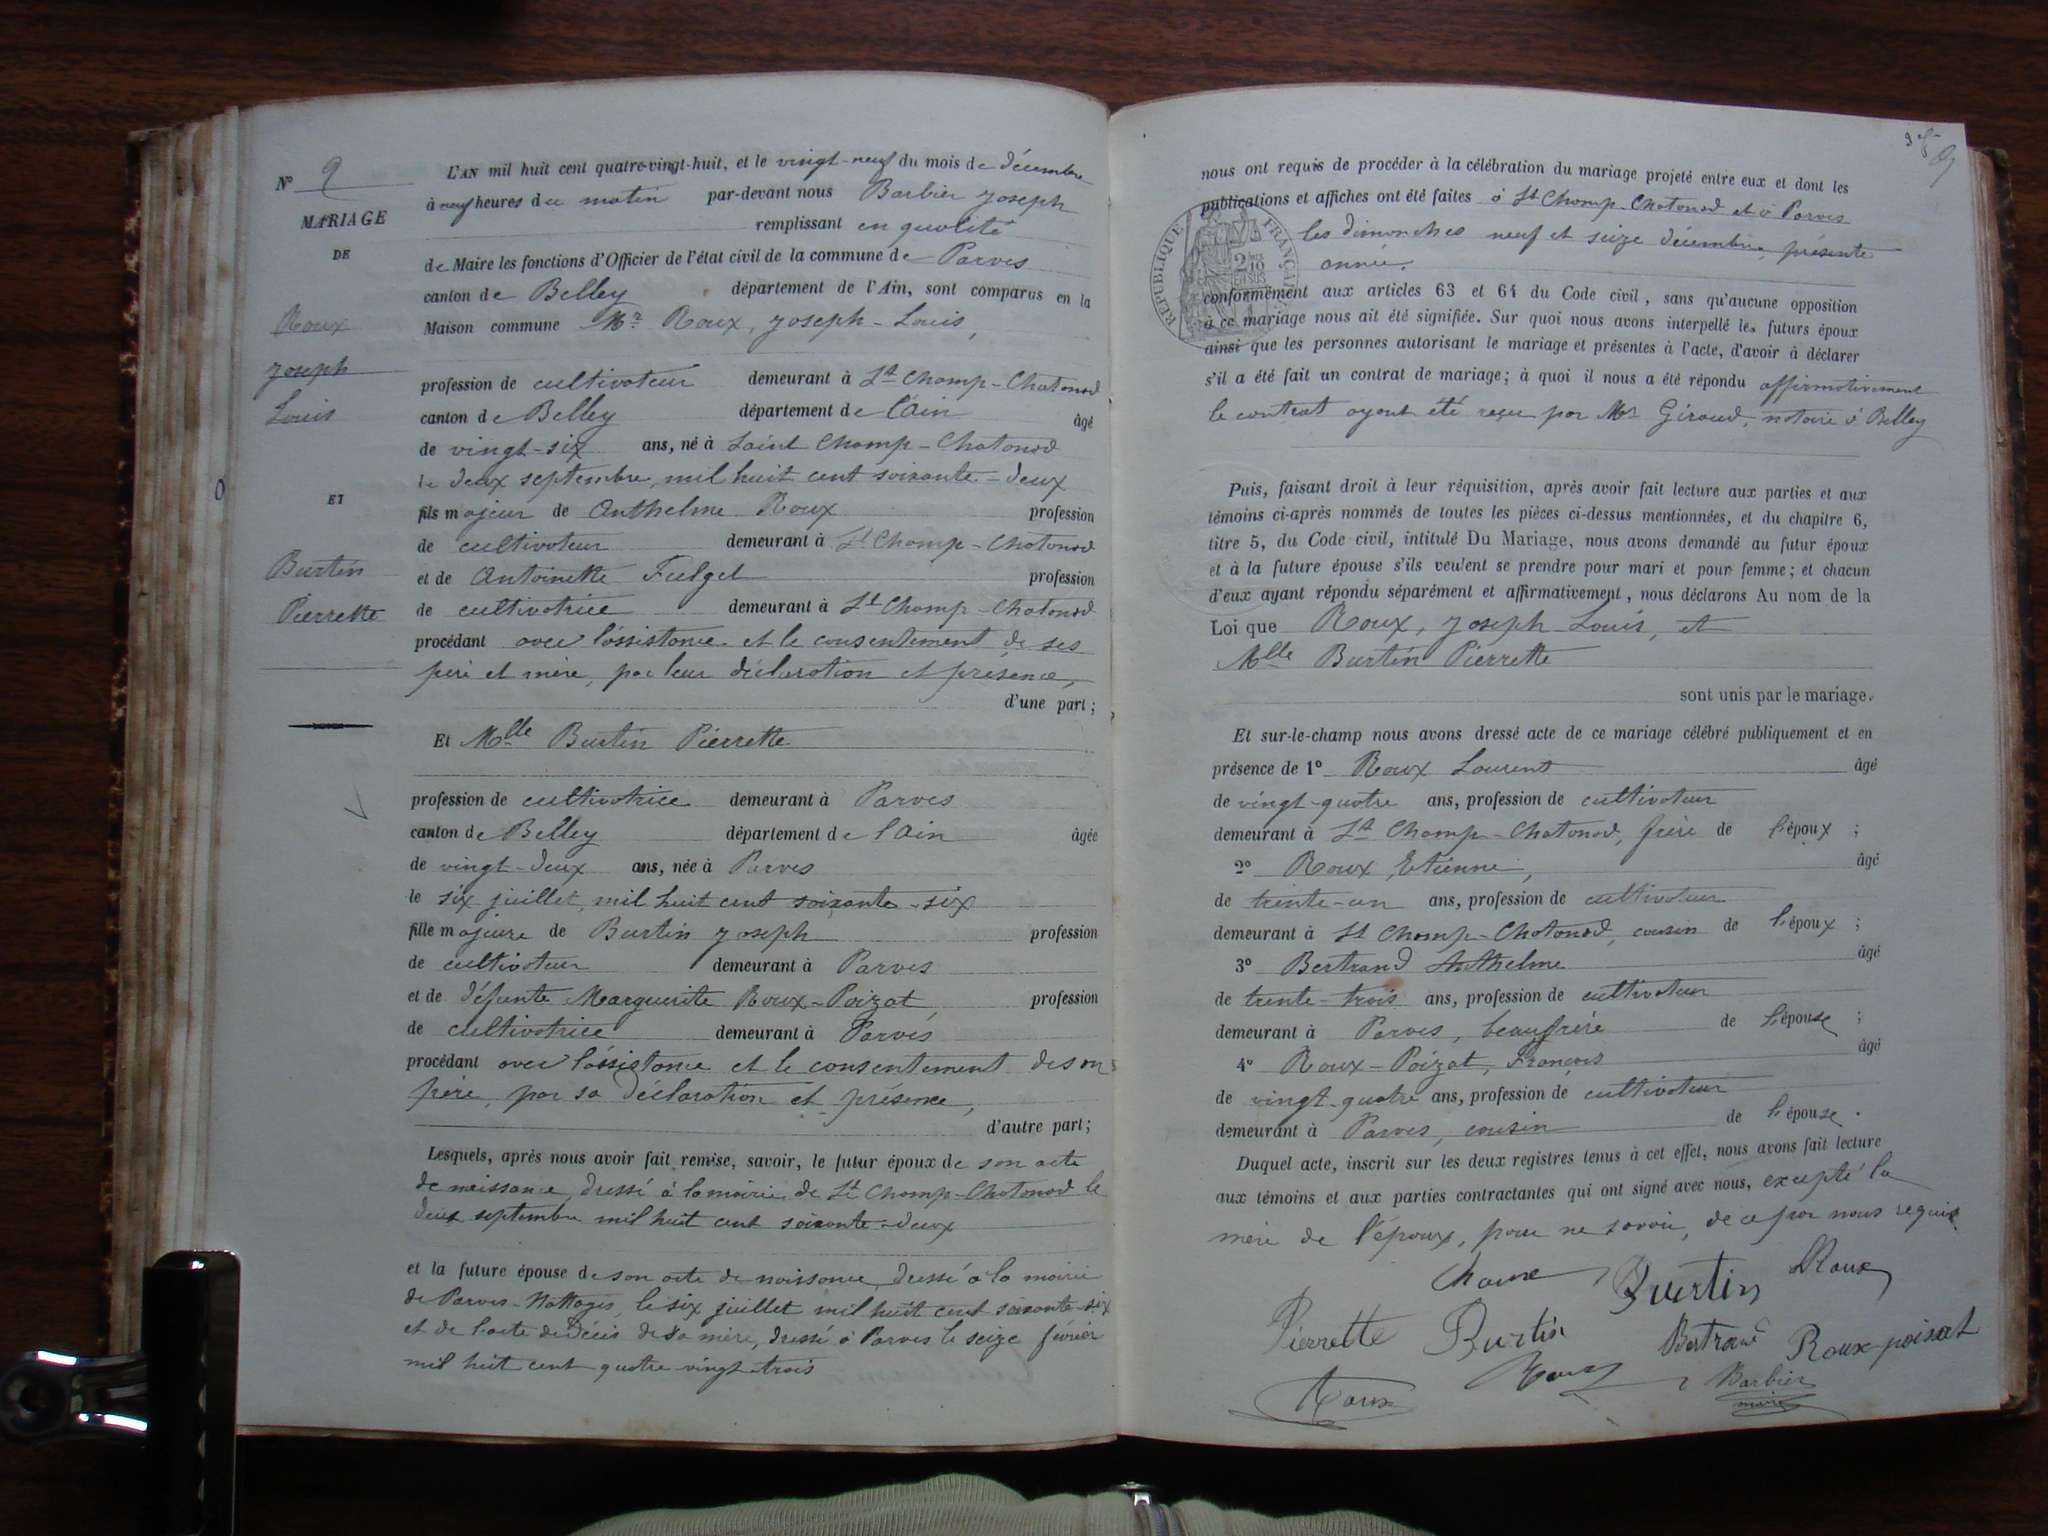 N° 9
MARIAGE
DE
Roux
Joseph
Louis
ET
Burtin
Pierrette
L'AN mil huit cent quatre-vingt-huit, et le vingt-neuf du mois de décembre
à neuf heures du matin par-devant nous Barbier Joseph
remplissant en qualité
de Maire les fonctions d'Officier de l'état civil de la commune de Parves
canton de Belley département de l'Ain, sont comparus en la
Maison commune Mr Roux, Joseph-Louis,
profession de cultivateur demeurant à St Champ-Chatonod
canton de Belley département de l'Ain âgé
de vingt-six ans, né à Saint Champ-Chatonod
le deux septembre, mil huit cent soixante-deux
fils majeur de Anthelme Roux profession
de cultivateur demeurant à St Champ-Chatonod
et de Antoinette Fulget profession
de cultivatrice demeurant à St Champ-Chatonod
procédant avec l'assistance et le consentement de ses
père et mère, par leur déclaration et présence,
d'une part ;
Et Mlle Burtin Pierrette
profession de cultivatrice demeurant à Parves
canton de Belley département de l'Ain âgée
de vingt-deux ans, née à Parves
le six juillet, mil huit cent soixante-six
fille majeure de Burtin Joseph profession
de cultivateur demeurant à Parves
et de défunte Marguerite Roux-Poizat, profession
de cultivatrice demeurant à Parves
procédant avec l'assistance et le consentement de son
père, par sa déclaration et présence,
d'autre part ;
Lesquels, après nous avoir fait remise, savoir, le futur époux de son acte
de naissance, dressé à la mairie de St Champ-Chatonod le
deux septembre mil huit cent soixante-deux
et la future épouse de son acte de naissance, dressé à la mairie
de Parves-Nattages, le six juillet mil huit cent soixante-six
et de l'acte de décès de sa mère, dressé à Parves le seize février
mil huit cent quatre-vingt-trois
9
nous ont requis de procéder à la célébration du mariage projeté entre eux et dont les
publications et affiches ont été faites à St Champ-Chatonod et à Parves
les dimanches neuf et seize décembre, présente
année.
RÉPUBLIQUE FRANÇAISE
conformément aux articles 63 et 64 du Code civil, sans qu'aucune opposition
à ce mariage nous ait été signifiée. Sur quoi nous avons interpellé les futurs époux
ainsi que les personnes autorisant le mariage et présentes à l'acte, d'avoir à déclarer
s'il a été fait un contrat de mariage ; à quoi il nous a été répondu affirmativement
le contrat ayant été reçu par Me Giraud, notaire à Belley
Puis, faisant droit à leur réquisition, après avoir fait lecture aux parties et aux
témoins ci-après nommés de toutes les pièces ci-dessus mentionnées, et du chapitre 6,
titre 5, du Code civil, intitulé Du Mariage, nous avons demandé au futur époux
et à la future épouse s'ils veulent se prendre pour mari et pour femme ; et chacun
d'eux ayant répondu séparément et affirmativement, nous déclarons Au nom de la
Loi que Roux, Joseph-Louis, et
Mlle Burtin Pierrette
sont unis par le mariage.
Et sur-le-champ nous avons dressé acte de ce mariage célébré publiquement et en
présence de 1° Roux Laurent âgé
de vingt-quatre ans, profession de cultivateur
demeurant à St Champ-Chatonod, frère de l'époux ;
2° Roux Etienne, âgé
de trente-un ans, profession de cultivateur
demeurant à St Champ-Chatonod, cousin de l'époux ;
3° Bertrand Anthelme âgé
de trente-trois ans, profession de cultivateur
demeurant à Parves, beaufrère de l'épouse ;
4° Roux-Poizat, François âgé
de vingt-quatre ans, profession de cultivateur
demeurant à Parves, cousin de l'épouse.
Duquel acte, inscrit sur les deux registres tenus à cet effet, nous avons fait lecture
aux témoins et aux parties contractantes qui ont signé avec nous, excepté la
mère de l'époux, pour ne savoir, de ce par nous requise.
Burtin Roux
Pierrette Burtin Bertrand Roux-poisat
Roux Roux Barbier
maire